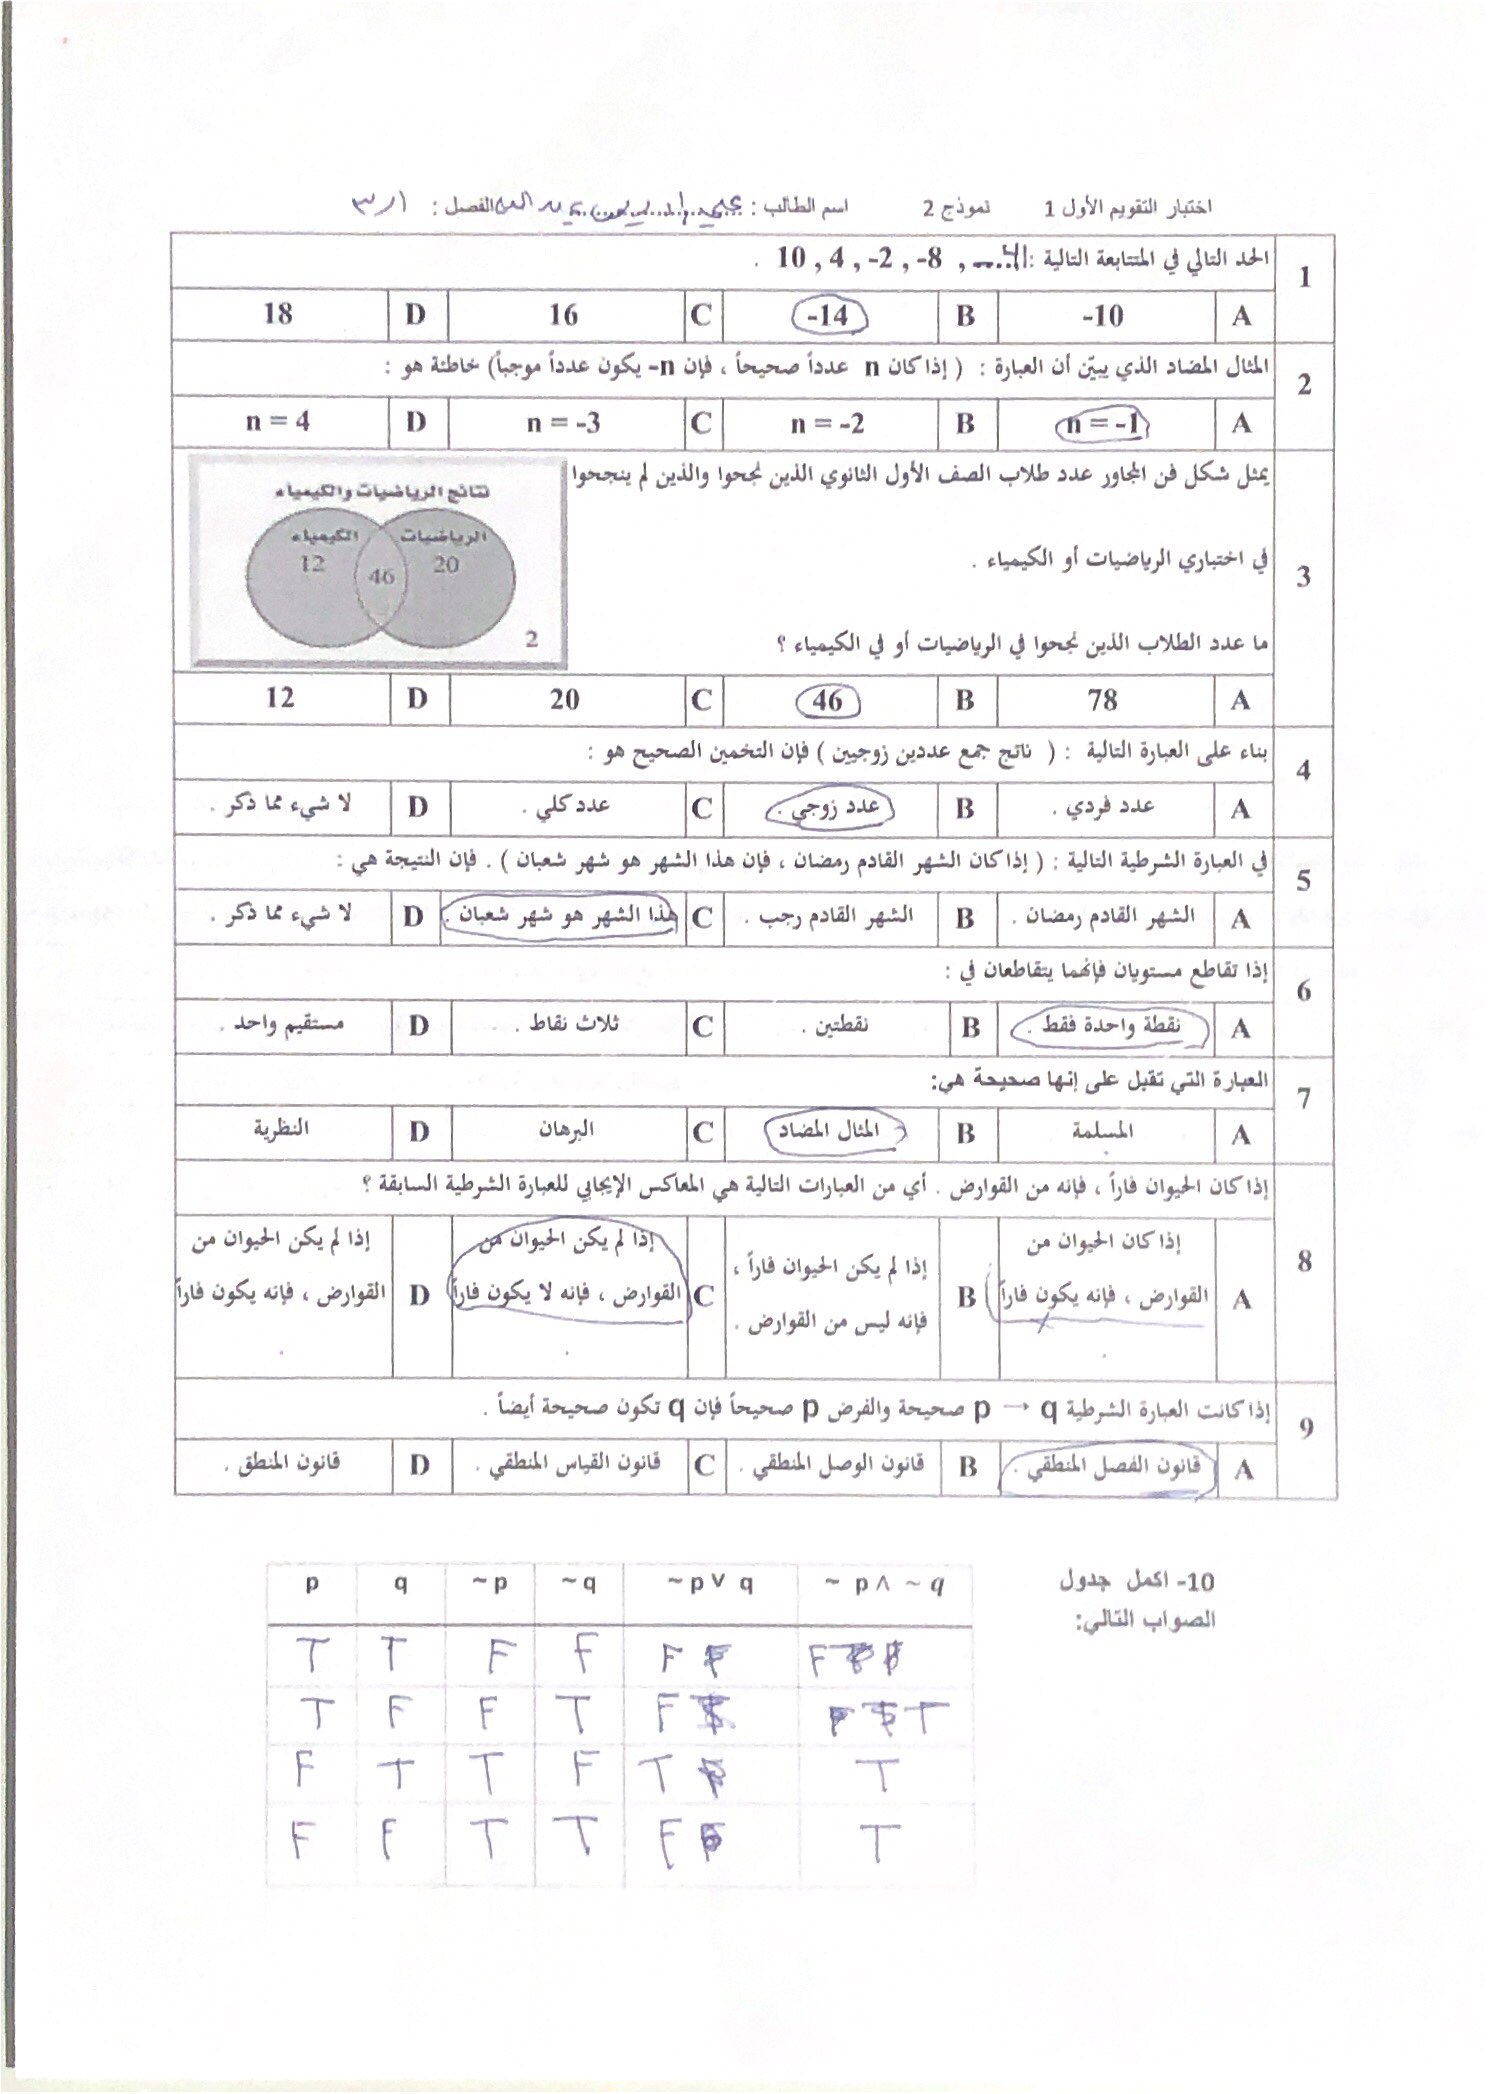 اختبار التقويم الأول 1 نموذج 2 اسم الطالب : الفصل : ٣/١
1
الحد التالي في المتتابعة التالية : 10 , 4 , -2 , -8 , ...... .
A -10 B -14 C 16 D 18
2
المثال المضاد الذي يبيّن أن العبارة : ( إذا كان n عدداً صحيحاً ، فإن n- يكون عدداً موجباً) خاطئة هو :
A n = -1 B n = -2 C n = -3 D n = 4
3
يمثل شكل فن المجاور عدد طلاب الصف الأول الثانوي الذين نجحوا والذين لم ينجحوا
في اختباري الرياضيات أو الكيمياء .
ما عدد الطلاب الذين نجحوا في الرياضيات أو في الكيمياء ؟
نتائج الرياضيات والكيمياء
الرياضيات الكيمياء
20 46 12
2
A 78 B 46 C 20 D 12
4
بناء على العبارة التالية : ( ناتج جمع عددين زوجيين ) فإن التخمين الصحيح هو :
A عدد فردي . B عدد زوجي . C عدد كلي . D لا شيء مما ذكر .
5
في العبارة الشرطية التالية : ( إذا كان الشهر القادم رمضان ، فإن هذا الشهر هو شهر شعبان ) . فإن النتيجة هي :
A الشهر القادم رمضان . B الشهر القادم رجب . C هذا الشهر هو شهر شعبان . D لا شيء مما ذكر .
6
إذا تقاطع مستويان فإنهما يتقاطعان في :
A نقطة واحدة فقط . B نقطتين . C ثلاث نقاط . D مستقيم واحد .
7
العبارة التي تقبل على إنها صحيحة هي:
A المسلمة B المثال المضاد C البرهان D النظرية
8
إذا كان الحيوان فاراً ، فإنه من القوارض . أي من العبارات التالية هي المعاكس الإيجابي للعبارة الشرطية السابقة ؟
A إذا كان الحيوان من القوارض ، فإنه يكون فاراً .
B إذا لم يكن الحيوان فاراً ، فإنه ليس من القوارض .
C إذا لم يكن الحيوان من القوارض ، فإنه لا يكون فاراً .
D إذا لم يكن الحيوان من القوارض ، فإنه يكون فاراً .
9
إذا كانت العبارة الشرطية p → q صحيحة والفرض p صحيحاً فإن q تكون صحيحة أيضاً .
A قانون الفصل المنطقي . B قانون الوصل المنطقي . C قانون القياس المنطقي . D قانون المنطق .
10- اكمل جدول
الصواب التالي:
p q ~p ~q ~p ∨ q ~ p ∧ ~ q
T T F F F F
T F F T F T
F T T F T T
F F T T F T